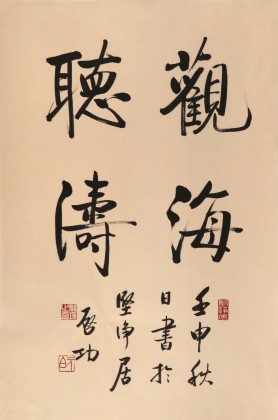 觀海
聽濤
壬申秋
日書於
堅淨居
啓功